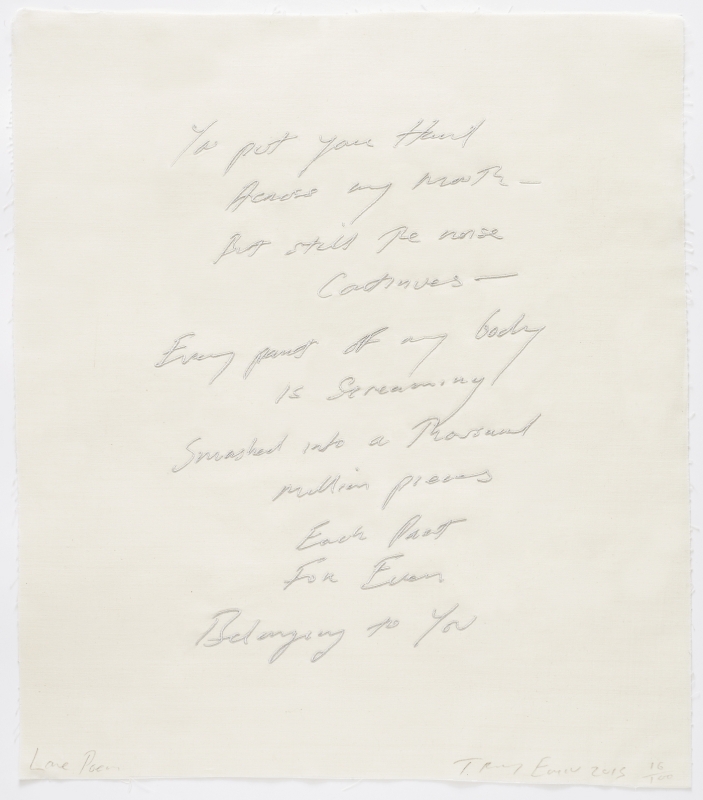 You put your Hand
Across my mouth —
But still the noise
Continues —
Every part of my body
is Screaming
Smashed into a Thousand
million pieces
Each Part
For Ever
Belonging to You
Love Poem
Tracey Emin 2013 36/100